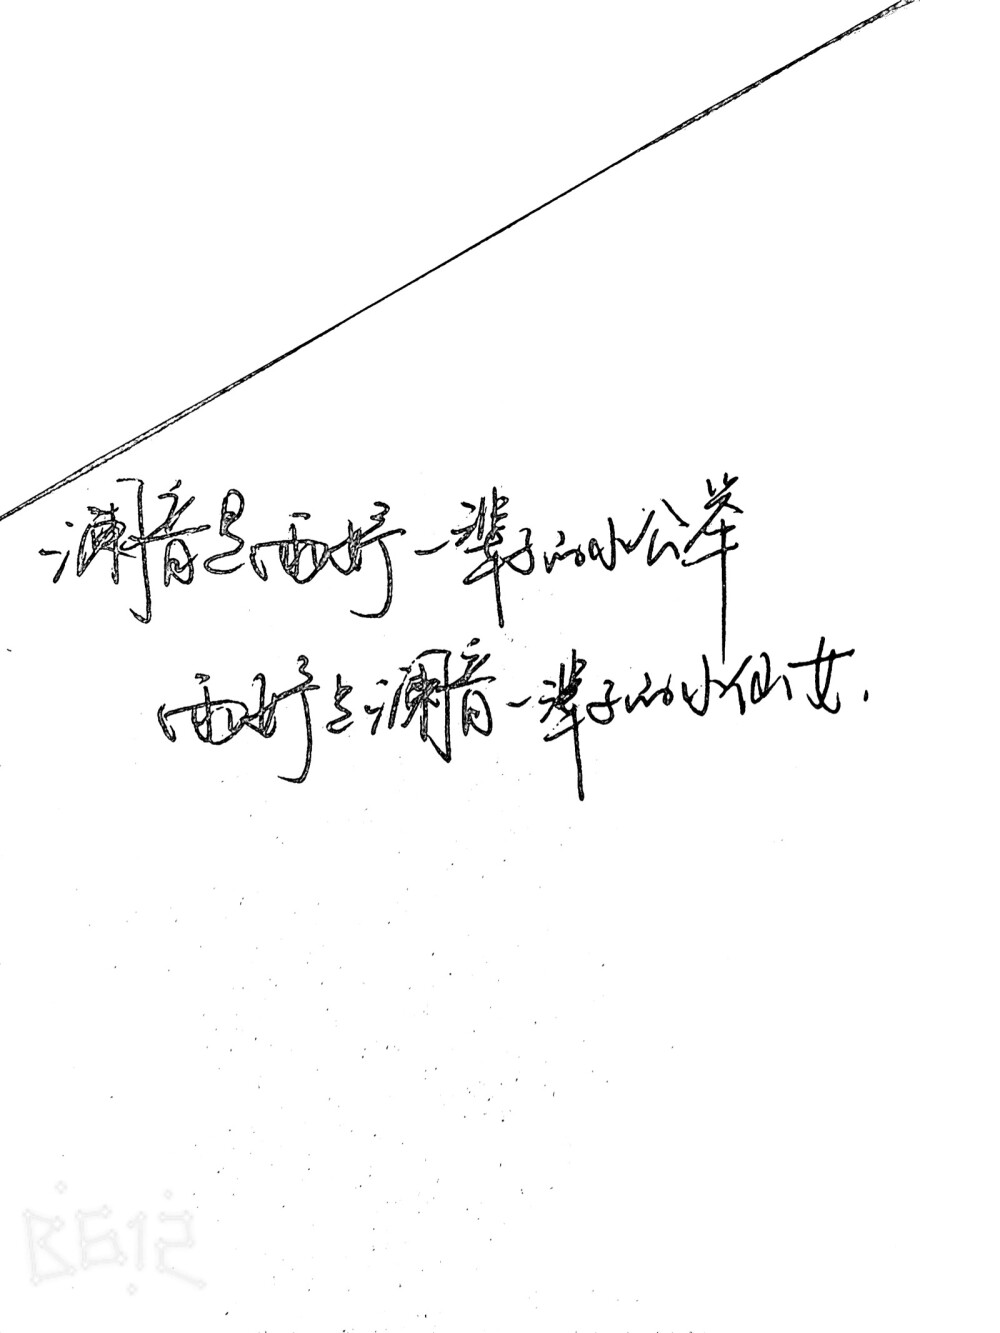 澜音是雨婷一辈子的小公举
雨婷是澜音一辈子的小仙女.
B612